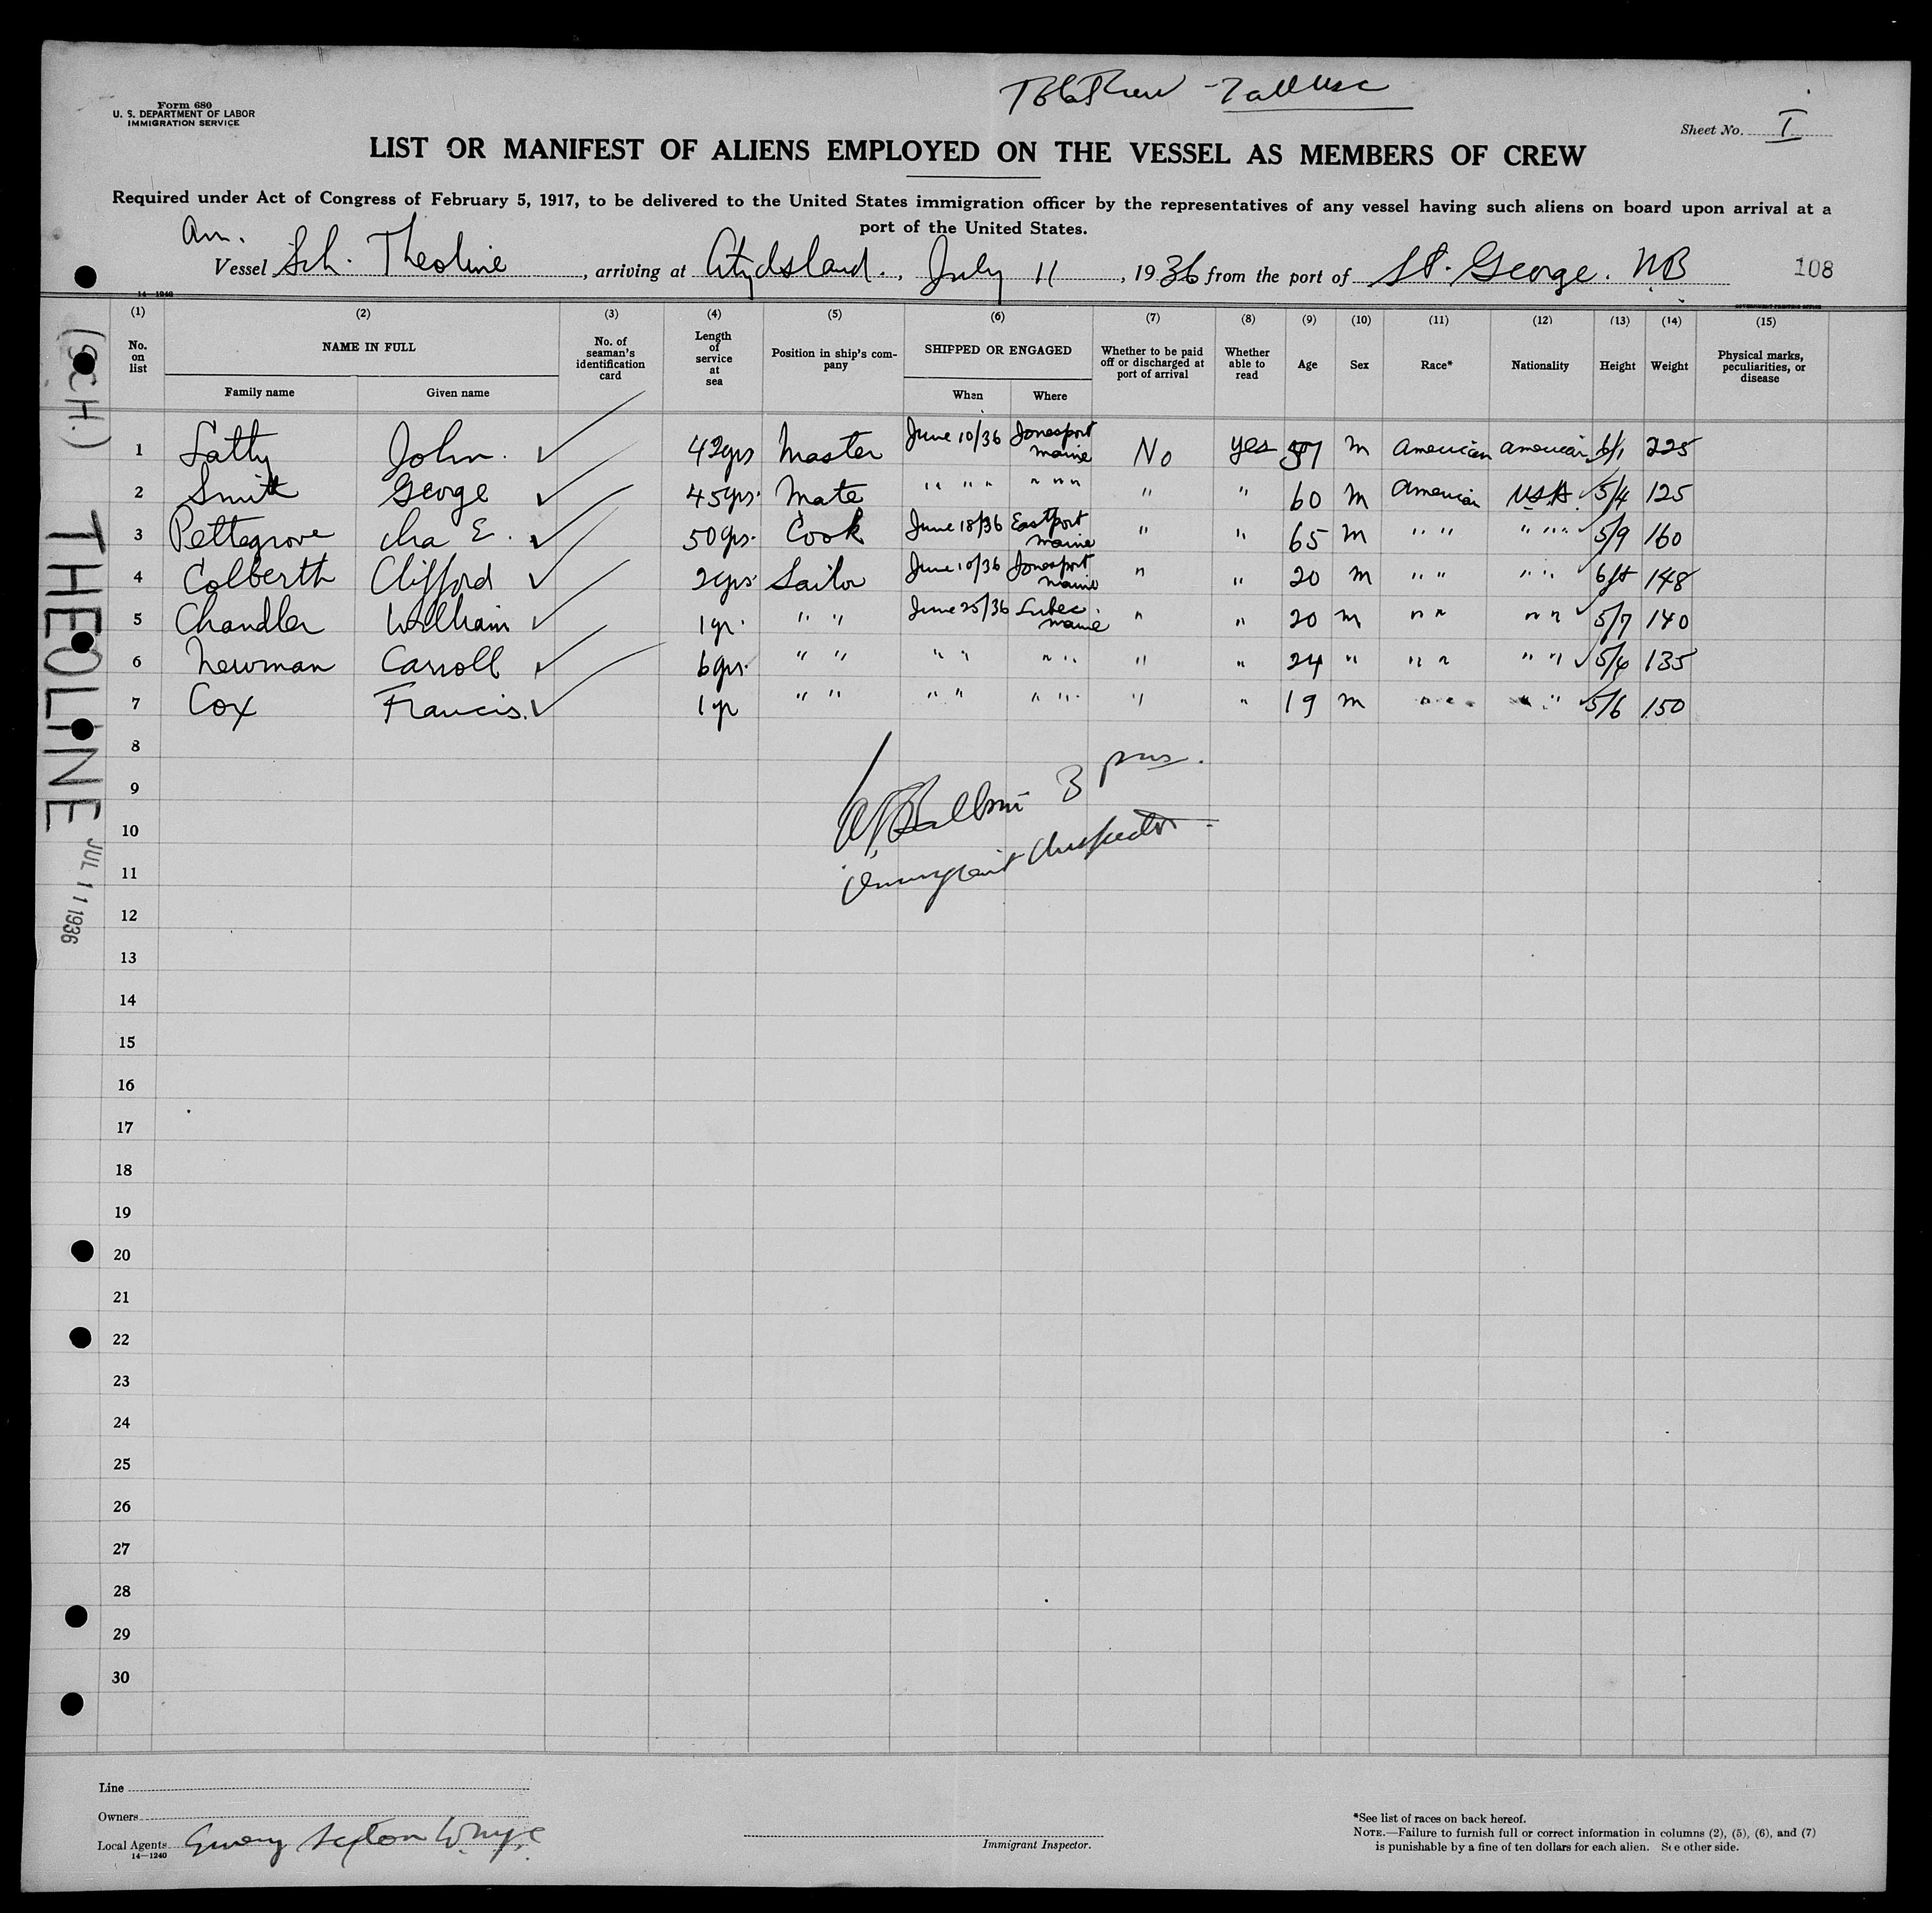 Form 680
U. S. DEPARTMENT OF LABOR
IMMIGRATION SERVICE
Sheet No. I
LIST OR MANIFEST OF ALIENS EMPLOYED ON THE VESSEL AS MEMBERS OF CREW
Required under Act of Congress of February 5, 1917, to be delivered to the United States immigration officer by the representatives of any vessel having such aliens on board upon arrival at a
port of the United States.
Am.
Vessel Sch. Theoline, arriving at City Island., July 11, 1936 from the port of St. George. NB
108
14—1240
(SCH.) THEOLINE
JUL 11 1936
(1) (2) (3) (4) (5) (6) (7) (8) (9) (10) (11) (12) (13) (14) (15)
No. on list NAME IN FULL No. of seaman's identification card Length of service at sea Position in ship's company SHIPPED OR ENGAGED Whether to be paid off or discharged at port of arrival Whether able to read Age Sex Race* Nationality Height Weight Physical marks, peculiarities, or disease
Family name Given name When Where
1 Latty John. 42yrs Master June 10/36 Jonesport Maine No yes 57 m American American 6/1 225
2 Smith George 45yrs. Mate " " " " " " " " " 60 m American USA. 5/4 125
3 Pettegrove Ira E. 50yrs. Cook June 18/36 Eastport Maine " " 65 m " " " " 5/9 160
4 Colberth Clifford 2yrs. Sailor June 10/36 Jonesport Maine " " 20 m " " " " 6ft 148
5 Chandler William 1yr. " " June 25/36 Lubec. Maine " " 20 m " " " " 5/7 140
6 Newman Carroll 6yrs. " " " " " " " " 24 " " " " " 5/6 135
7 Cox Francis. 1yr " " " " " " " " 19 m " " " " 5/6 150
8
9
10
11
12
13
14
15
16
17
18
19
20
21
22
23
24
25
26
27
28
29
30
3 pm.
Immigrant Inspector.
Line
Owners
Local Agents
14—1240
Immigrant Inspector.
*See list of races on back hereof.
NOTE.—Failure to furnish full or correct information in columns (2), (5), (6), and (7)
is punishable by a fine of ten dollars for each alien. See other side.